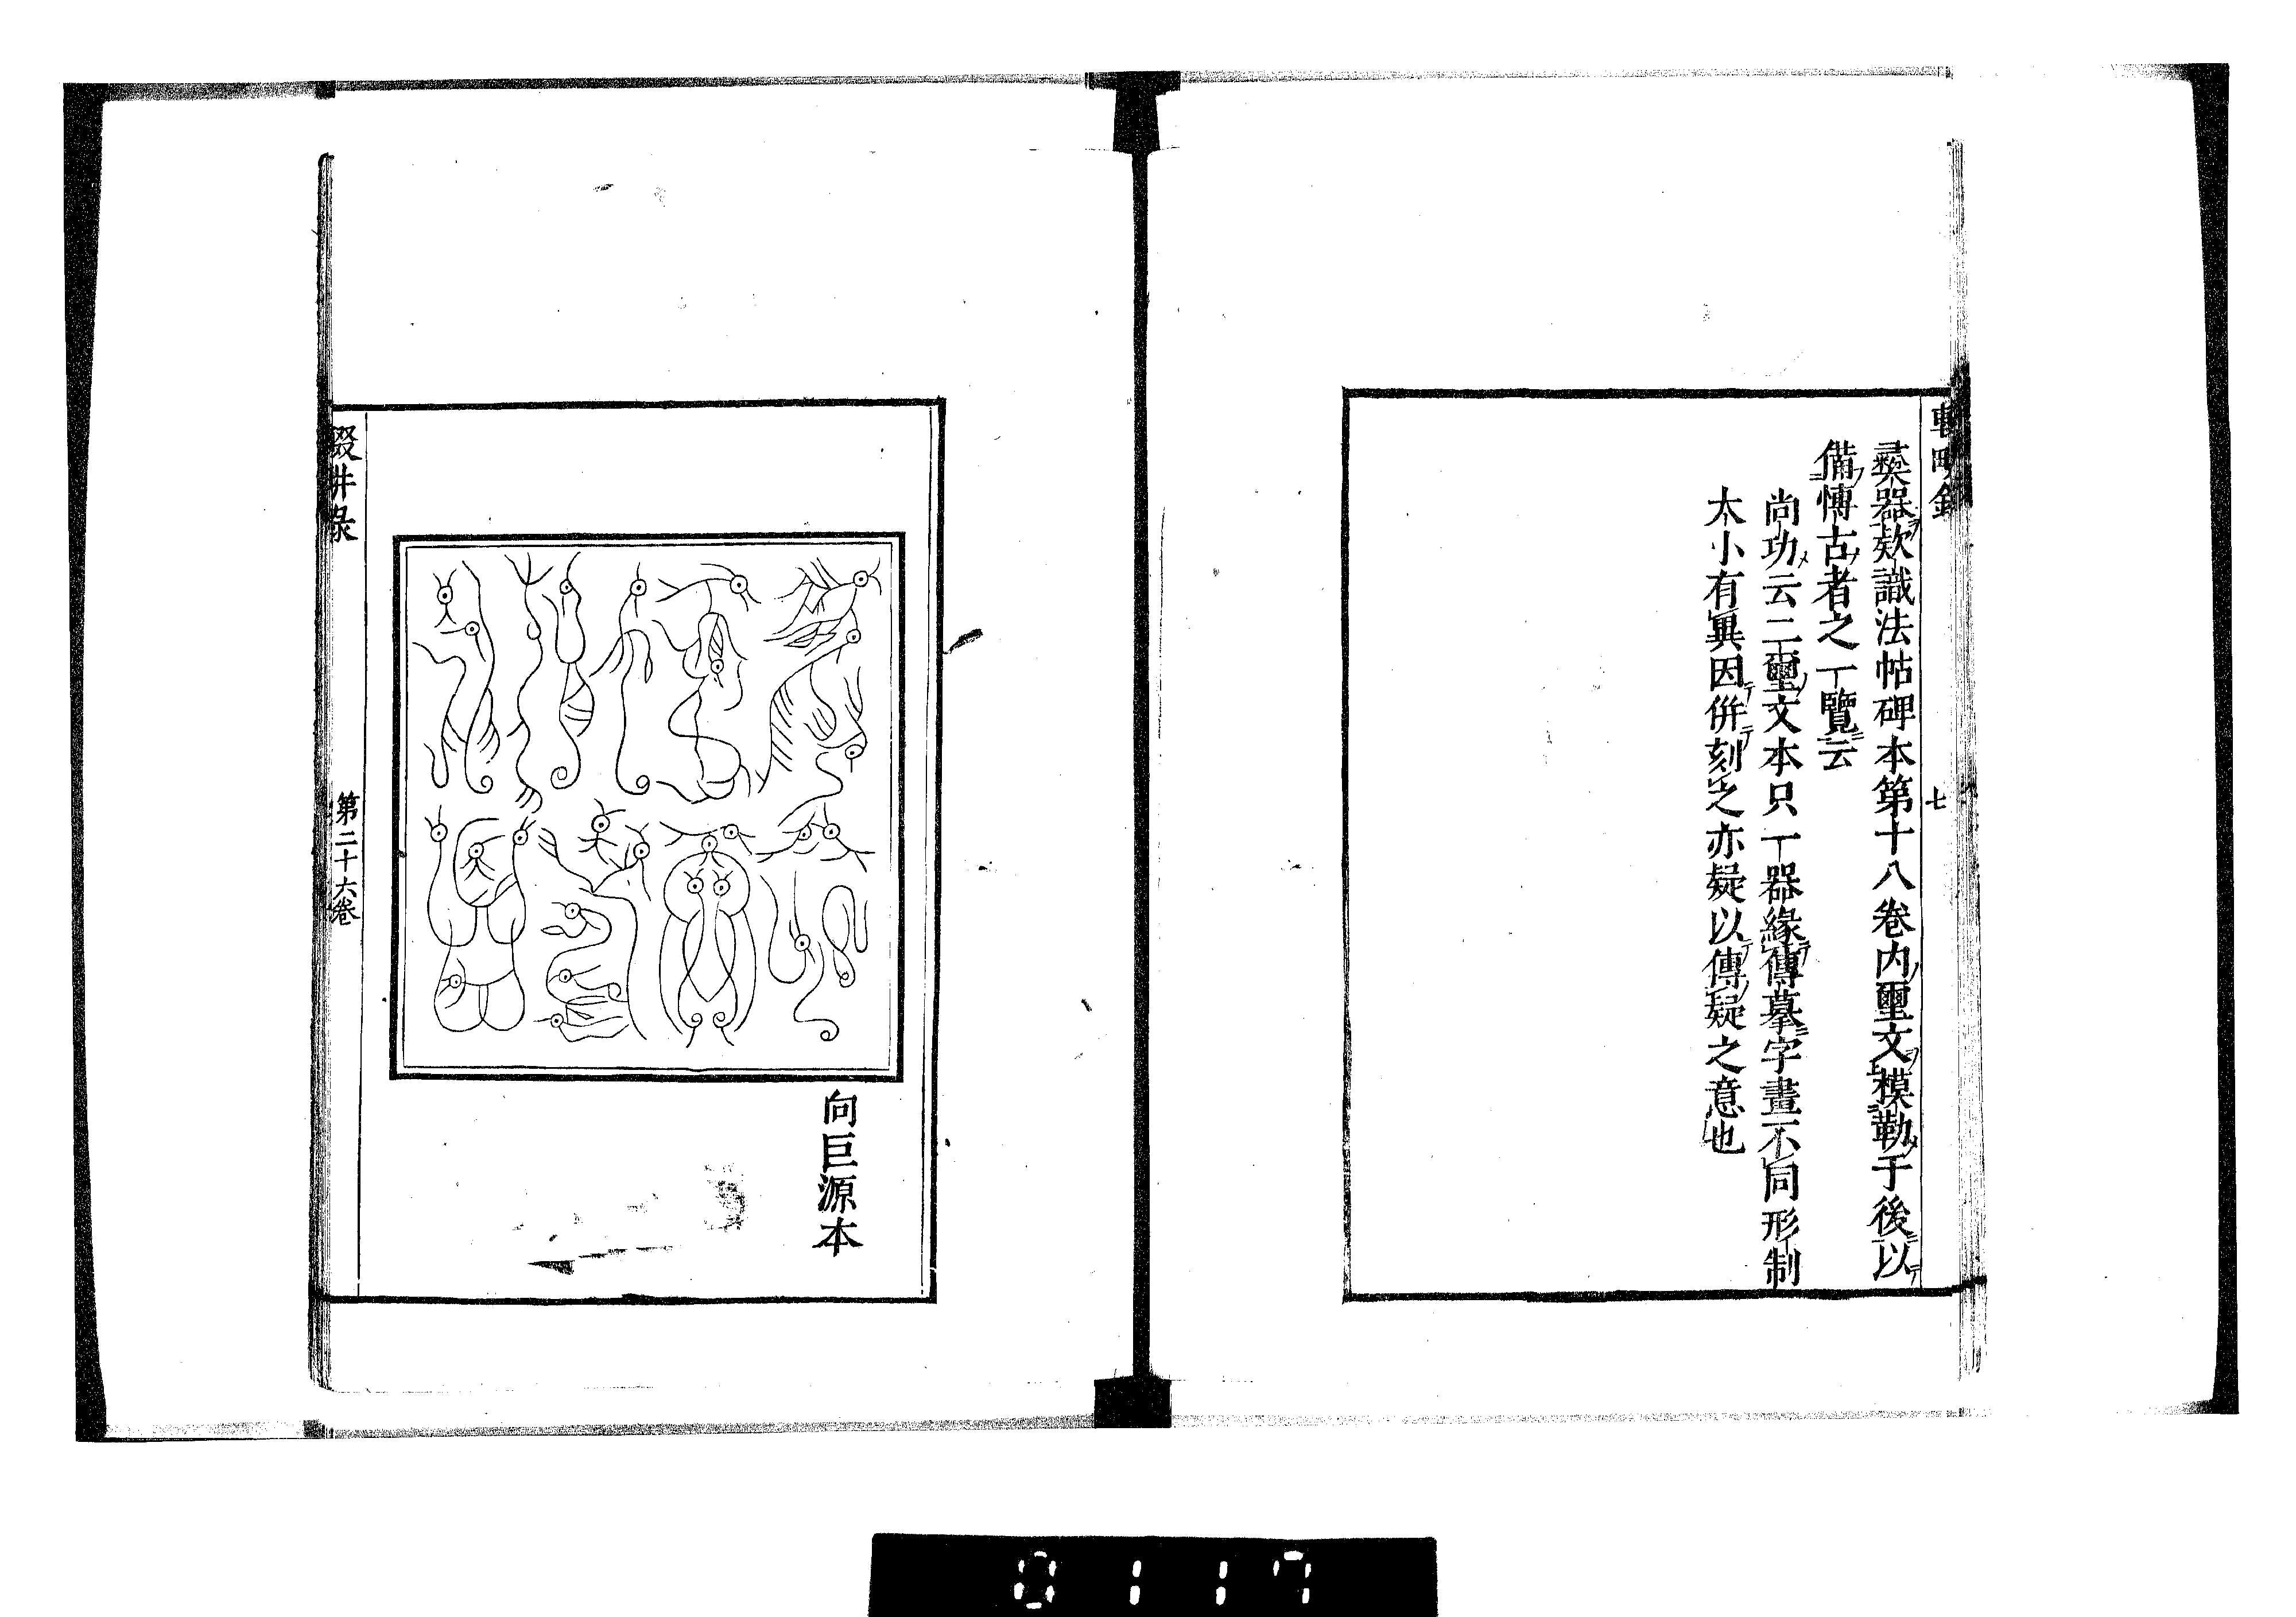 彛器欵識法帖碑本第十八卷内璽文模勒于後以
備愽古者之一覽云
尚功云二璽文本只一器緣傳摹字畫不同形制
大小有異因併刻之亦疑以傳疑之意也
七
向巨源本
第二十六卷
0117